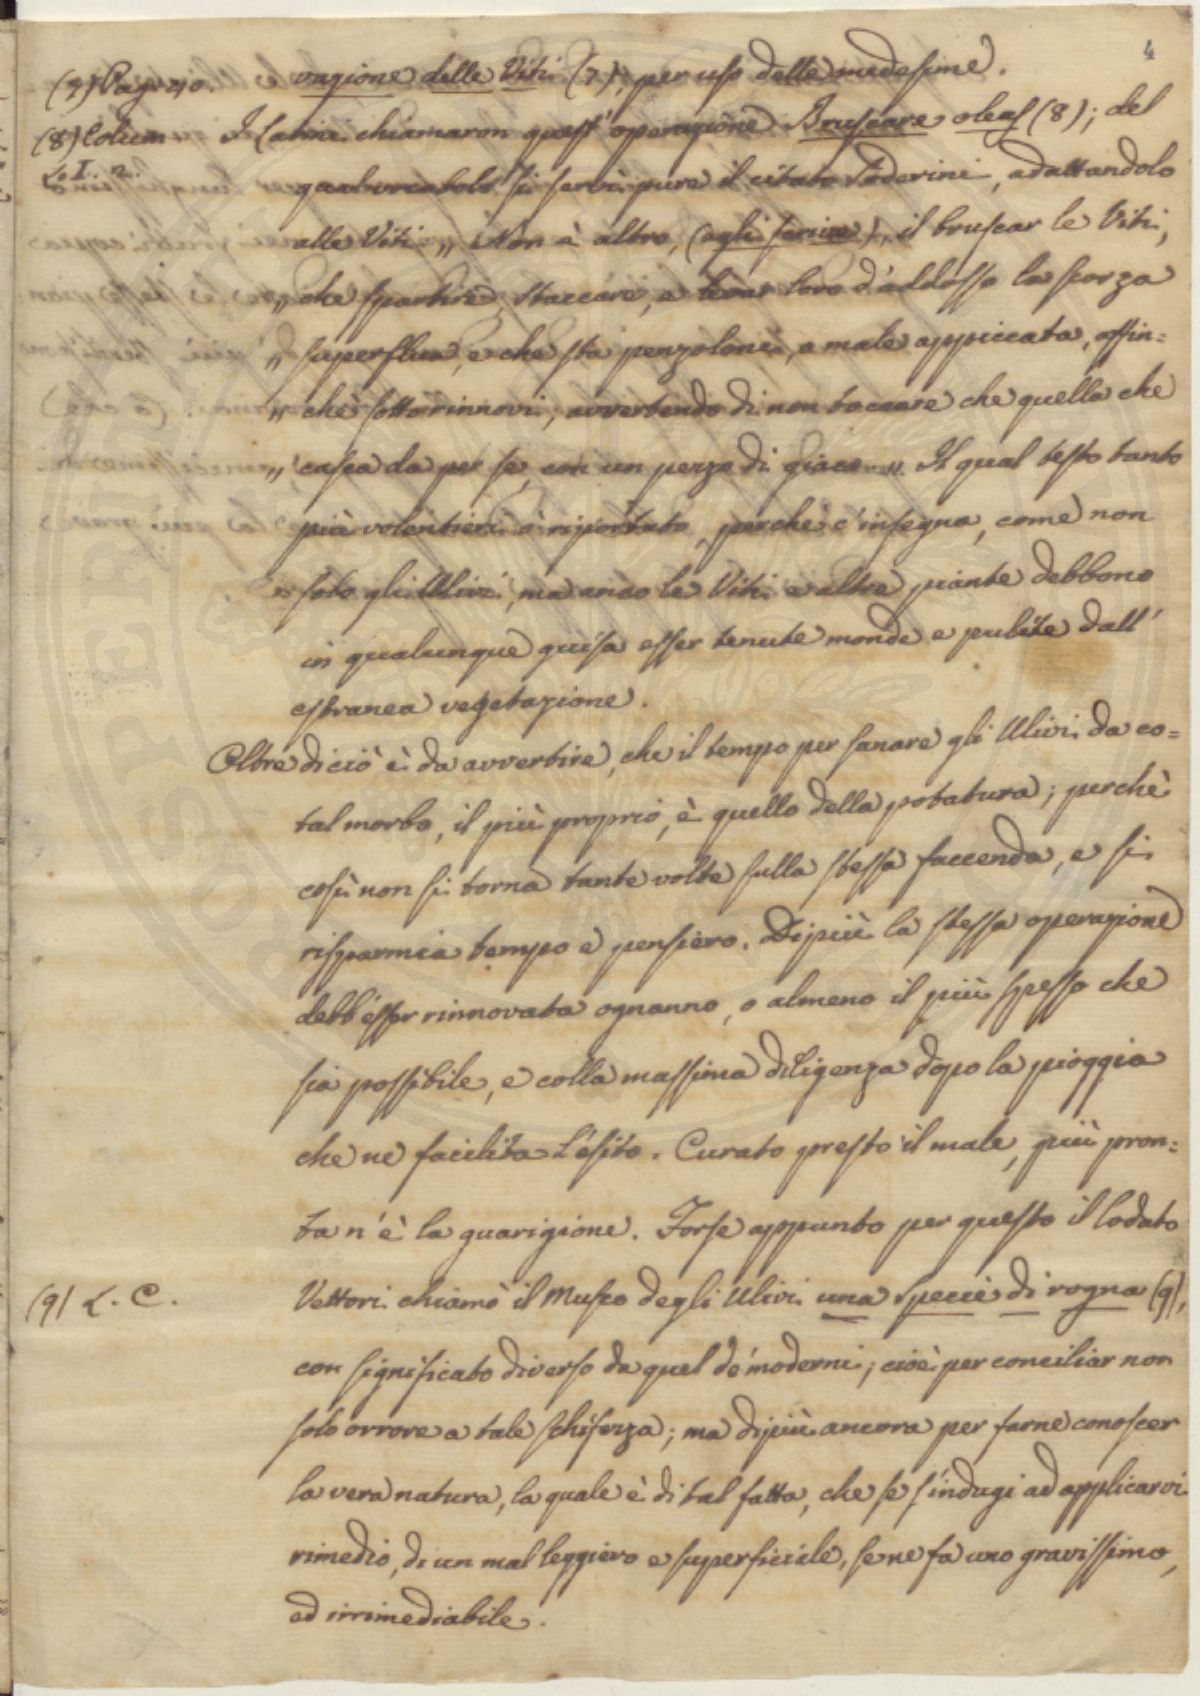 4
(7) Pag. 270.
vazione delle Viti (7), per uso delle medesime.
(8) Colum.
L. I. 2.
I Latini chiamaron quest'operazione Bruscare oleas (8); del
qual vocabolo si servì pure il citato Soderini, adattandolo
alle Viti „ Non è altro, (egli scrive), il bruscar le Viti,
„ che spartire, staccare, e levar loro d'addosso la scorza
„ superflua, e che sta penzoloni, o male appiccata, affin=
„ chè sotto rinnovi; avvertendo di non toccare che quella che
„ casca da per se, con un pezzo di giaco. „ Il qual testo tanto
più volentieri ò riportato, perchè c'insegna, come non
solo gli Ulivi, ma anco le Viti e altre piante debbono
in qualunque guisa esser tenute monde e pulite dall'
estranea vegetazione.
Oltre di ciò è da avvertire, che il tempo per sanare gli Ulivi da co=
tal morbo, il più proprio, è quello della potatura; perchè
così non si torna tante volte sulla stessa faccenda, e si
risparmia tempo e pensiero. Dipiù la stessa operazione
debb'esser rinnovata ognanno, o almeno il più spesso che
sia possibile, e colla massima diligenza dopo la pioggia
che ne facilita l'ésito. Curato presto il male, più pron=
ta n'è la guarigione. Forse appunto per questo il lodato
(9) L. C.
Vettori chiamò il Musco degli Ulivi una specie di rogna (9),
con significato diverso da quel de' moderni; cioè per conciliar non
solo orrore a tale schifezza; ma dipiù ancora per farne conoscer
la vera natura, la quale è di tal fatta, che se s'indugi ad applicarvi
rimedio, di un mal leggiero e superficiale, se ne fa uno gravissimo,
ed irrimediabile.